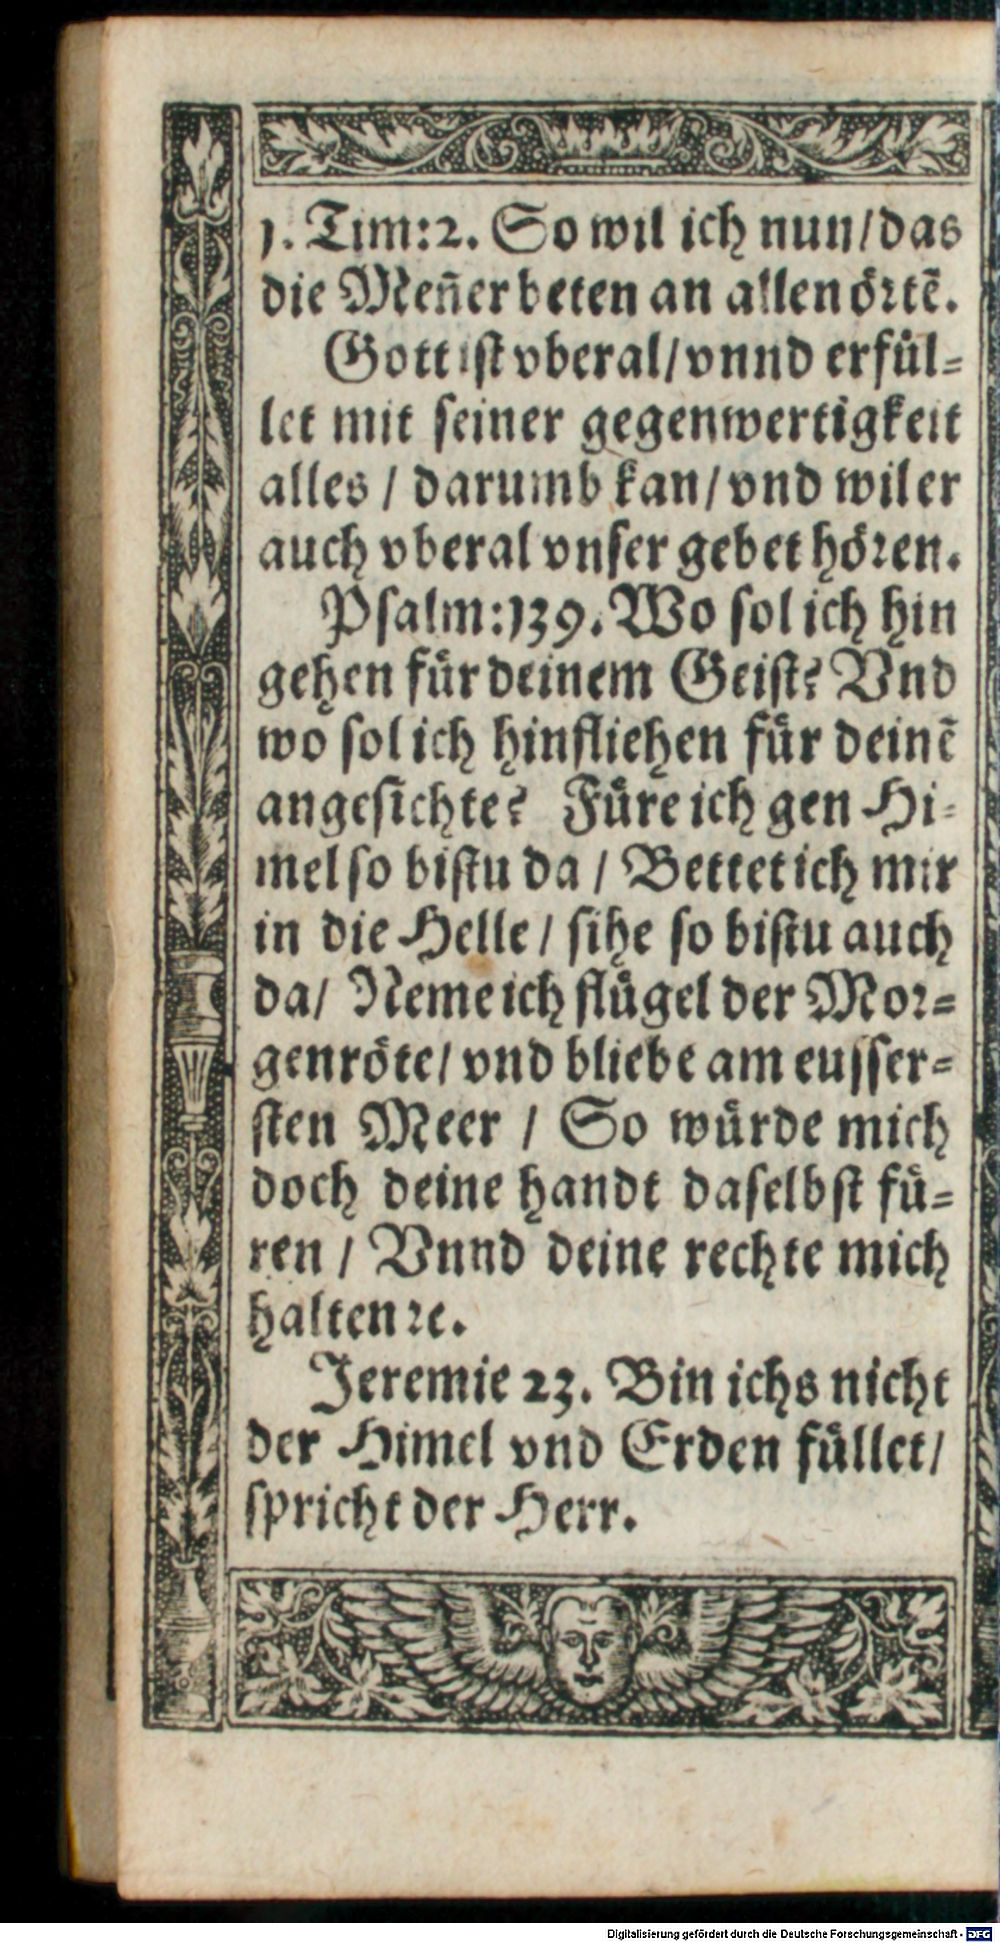 1. Tim:2. So wil ich nun/das
die Meñer beten an allen örtẽ.
Gott ist vberal/vnnd erfül-
let mit seiner gegenwertigkeit
alles / darumb kan/vnd wil er
auch vberal vnser gebet hören.
Psalm:139. Wo sol ich hin
gehen für deinem Geist? Vnd
wo sol ich hinfliehen für deinẽ
angesichte? Füre ich gen Hi-
mel so bistu da / Bettet ich mir
in die Helle / sihe so bistu auch
da/ Neme ich flügel der Mor-
genröte/ vnd bliebe am eusser-
sten Meer / So würde mich
doch deine handt daselbst fü-
ren / Vnnd deine rechte mich
halten ꝛc.
Jeremie 23. Bin ichs nicht
der Himel vnd Erden füllet/
spricht der Herr.
Digitalisierung gefördert durch die Deutsche Forschungsgemeinschaft - DFG